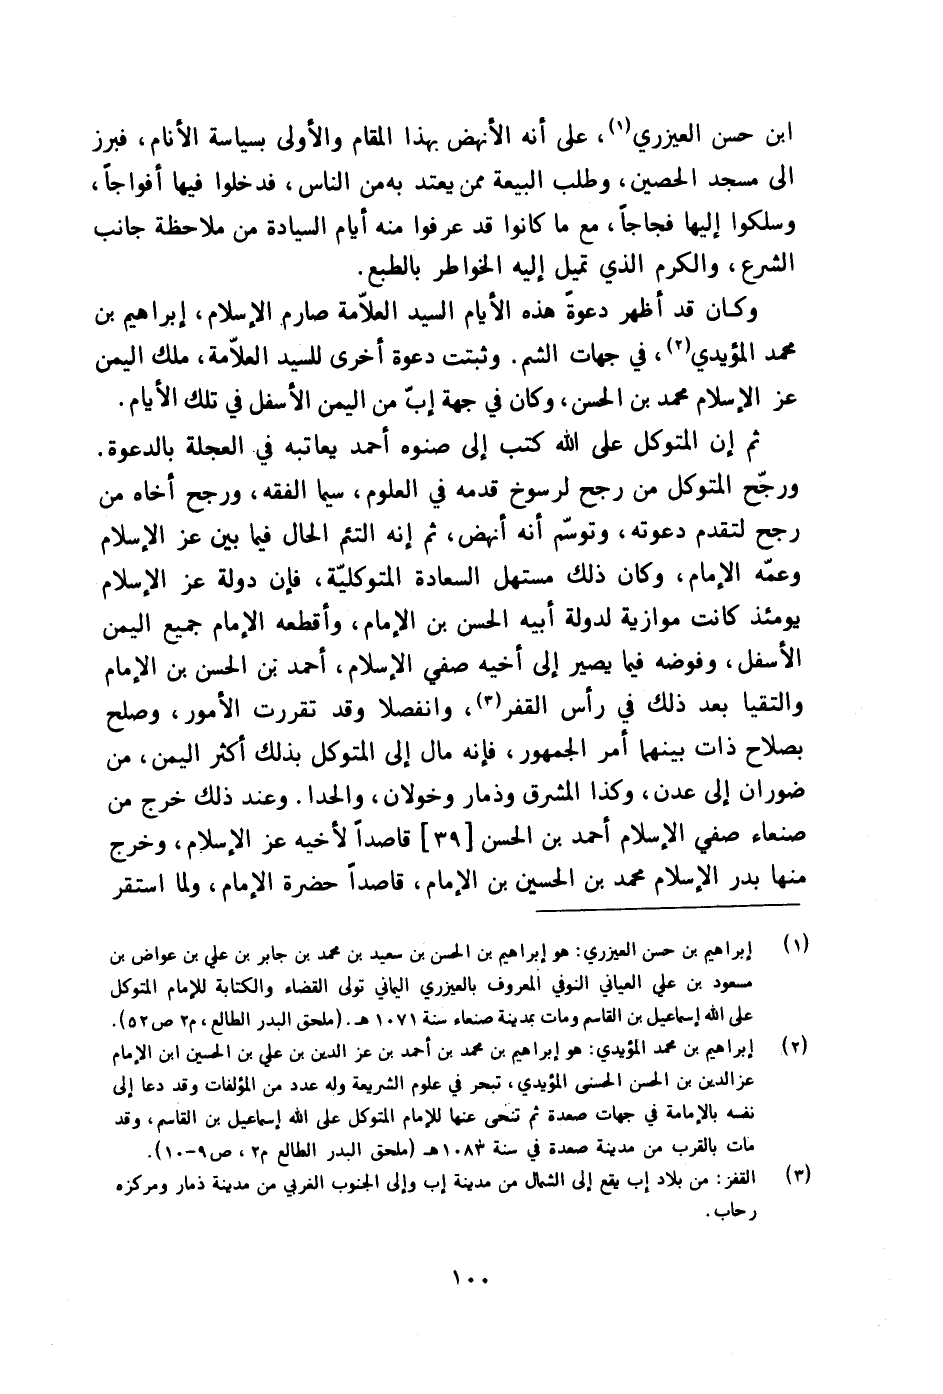 ابن حسن العيزري(١)، على أنه الأنهض بهذا المقام والأولى بسياسة الأنام، فبرز
الى مسجد الحصين، وطلب البيعة ممن يعتد به من الناس، فدخلوا فيها أفواجاً،
وسلكوا إليها فجاجاً، مع ما كانوا قد عرفوا منه أيام السيادة من ملاحظة جانب
الشرع، والكرم الذي تميل إليه الخواطر بالطبع.
وكان قد أظهر دعوةً هذه الأيام السيد العلاّمة صارم الإسلام، إبراهيم بن
محمد المؤيدي(٢)، في جهات الشم. وثبتت دعوة أخرى للسيد العلاّمة، ملك اليمن
عز الإسلام محمد بن الحسن، وكان في جهة إبّ من اليمن الأسفل في تلك الأيام.
ثم إن المتوكل على الله كتب إلى صنوه أحمد يعاتبه في العجلة بالدعوة.
ورجّح المتوكل من رجح لرسوخ قدمه في العلوم، سيما الفقه، ورجح أخاه من
رجح لتقدم دعوته، وتوسّم أنه أنهض، ثم إنه التئم الحال فيما بين عز الإسلام
وعمّه الإمام، وكان ذلك مستهل السعادة المتوكليّة، فإن دولة عز الإسلام
يومئذ كانت موازية لدولة أبيه الحسن بن الإمام، وأقطعه الإمام جميع اليمن
الأسفل، وفوضه فيما يصير إلى أخيه صفي الإسلام، أحمد بن الحسن بن الإمام
والتقيا بعد ذلك في رأس القفر(٣)، وانفصلا وقد تقررت الأمور، وصلح
بصلاح ذات بينهما أمر الجمهور، فإنه مال إلى المتوكل بذلك أكثر اليمن، من
ضوران إلى عدن، وكذا المشرق وذمار وخولان، والحدا. وعند ذلك خرج من
صنعاء صفي الإسلام أحمد بن الحسن [٣٩] قاصداً لأخيه عز الإسلام، وخرج
منها بدر الإسلام محمد بن الحسين بن الإمام، قاصداً حضرة الإمام، ولما استقر
(١) إبراهيم بن حسن العيزري: هو إبراهيم بن الحسن بن سعيد بن محمد بن جابر بن علي بن عواض بن
مسعود بن علي العياني النوفي المعروف بالعيزري اليماني تولى القضاء والكتابة للإمام المتوكل
على الله إسماعيل بن القاسم ومات بمدينة صنعاء سنة ١٠٧١ هـ. (ملحق البدر الطالع، م٢ ص٥٢).
(٢) إبراهيم بن محمد المؤيدي: هو إبراهيم بن محمد بن أحمد بن عز الدين بن علي بن الحسين ابن الإمام
عزالدين بن الحسن الحسني المؤيدي، تبحر في علوم الشريعة وله عدد من المؤلفات وقد دعا إلى
نفسه بالإمامة في جهات صعدة ثم تنحى عنها للإمام المتوكل على الله إسماعيل بن القاسم، وقد
مات بالقرب من مدينة صعدة في سنة ١٠٨٣ هـ (ملحق البدر الطالع م٢، ص٩-١٠).
(٣) القفز: من بلاد إب يقع إلى الشمال من مدينة إب وإلى الجنوب الغربي من مدينة ذمار ومركزه
رحاب.
١٠٠